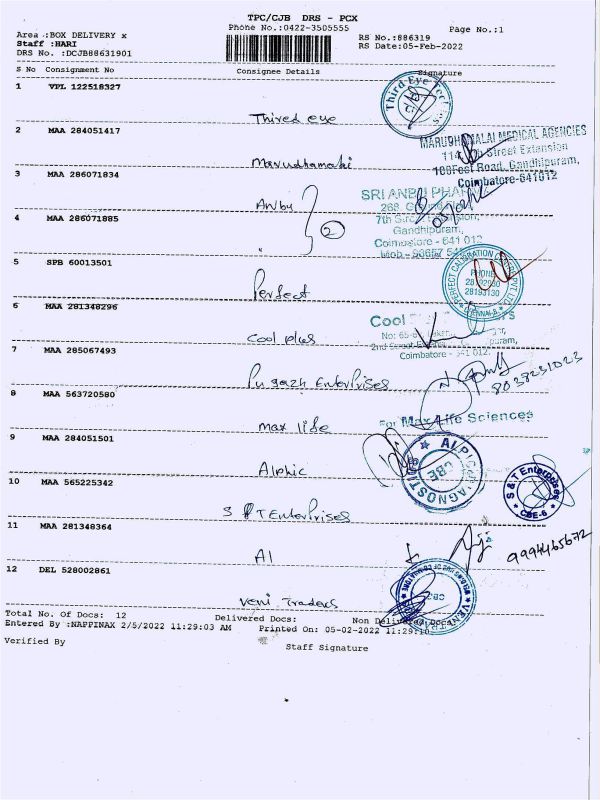 TPC/CJB DRS - PCX
Phone No.:0422-3505555
Page No.:1
Area :BOX DELIVERY x
RS No.:886319
Staff :HARI
RS Date:05-Feb-2022
DRS No. :DCJB88631901
S No Consignment No Consignee Details Signature
1 VPL 122518327
Third Eye
Thired eye
2 MAA 284051417
MARUDHAMALAI MEDICAL AGENCIES
Street Extension
Marudhamalai
100Feet Road, Gandhipuram,
Coimbatore-641012
3 MAA 286071834
SRI ANBU
Anbu
2
4 MAA 286071885
Gandhipuram,
Coimbatore - 641 012
5 SPB 60013501
PERFECT CALIBRATION
PHONE
Perfect
6 MAA 281348296
Cool
Cool plus
Coimbatore - 641 012.
7 MAA 285067493
Pugazh Enterprises
8038231023
8 MAA 563720580
For Max Life Sciences
max life
9 MAA 284051501
ALPIC
CBE
Alphic
10 MAA 565225342
S & T Enterprises
CBE-6
S & T Enterprises
11 MAA 281348364
A1
9994465672
12 DEL 528002861
Veni Traders
Total No. Of Docs: 12 Delivered Docs: Non Delivered Docs:
Entered By :NAPPINAX 2/5/2022 11:29:03 AM Printed On: 05-02-2022 11:29:10
Verified By Staff Signature